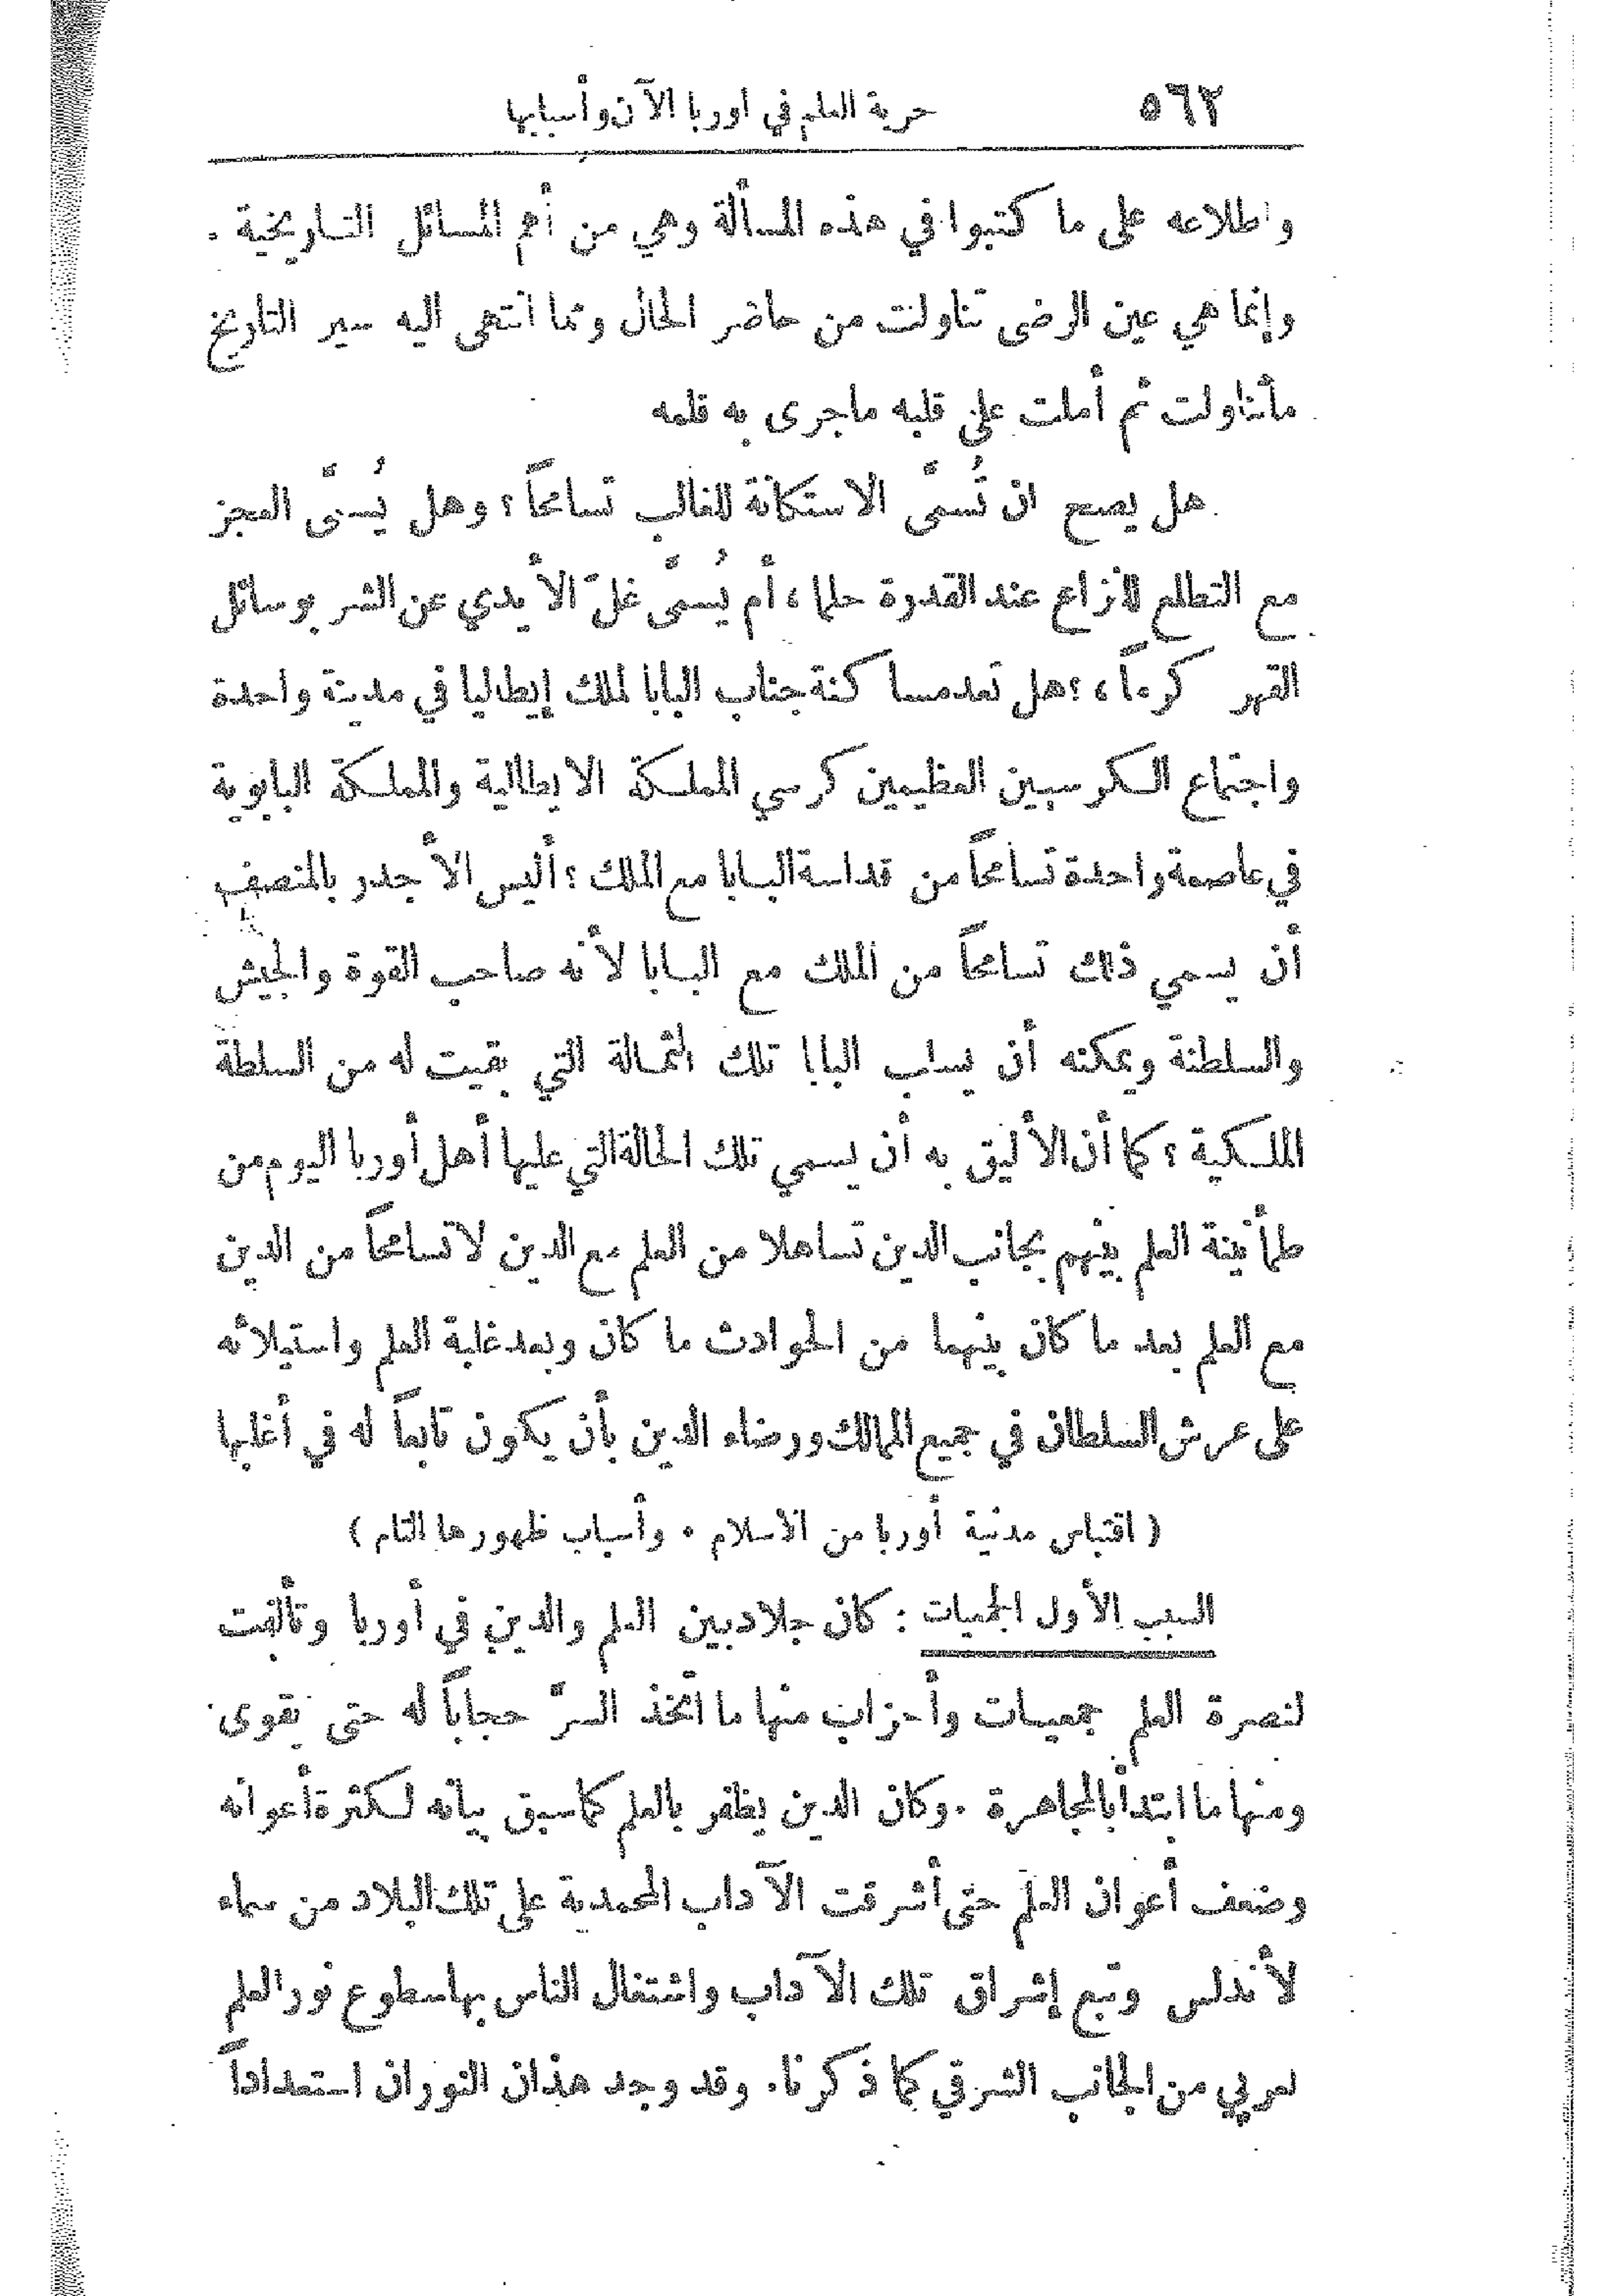 ٥٦٢ حرية العلم في أوربا الآن وأسبابها
واطلاعه على ما كتبوا في هذه المسألة وهي من أهم المسائل التاريخية .
وإنما هي عين الرضى تناولت من حاضر الحال ومما انتهى اليه سير التاريخ
ماتناولت ثم أملت على قلبه ماجرى به قلمه
هل يصح ان تُسمَّى الاستكانة للغالب تسامحاً ؟ وهل يُسمَّى العجز
مع التطلع للنزاع عند القدرة حلما ، أم يُسمَّى غلّ الأيدي عن الشر بوسائل
القهر كرماً ، ؟ هل تعد مساكنة جناب البابا لملك إيطاليا في مدينة واحدة
واجتماع الكرسيين العظيمين كرسي المملكة الايطالية والمملكة البابوية
في عاصمة واحدة تسامحاً من قداسة البابا مع الملك ؟ أليس الأجدر بالمنصف
أن يسمي ذلك تسامحاً من الملك مع البابا لأنه صاحب القوة والجيش
والسلطنة ويمكنه أن يسلب البابا تلك الثمالة التي بقيت له من السلطة
الملكية ؟ كما أن الأليق به أن يسمي تلك الحالة التي عليها أهل أوربا اليوم من
طمأنينة العلم بينهم بجانب الدين تساهلا من العلم مع الدين لا تسامحاً من الدين
مع العلم بعد ما كان بينهما من الحوادث ما كان وبعد غلبة العلم واستيلائه
على عرش السلطان في جميع الممالك ورضاء الدين بأن يكون تابعاً له في أغلبها
( اقتباس مدنية أوربا من الاسلام . وأسباب ظهورها التام )
السبب الأول الجمعيات : كان جلاد بين العلم والدين في أوربا وتألفت
لنصرة العلم جمعيات وأحزاب منها ما اتخذ السرّ حجاباً له حتى يقوى
ومنها ما ابتدأ بالمجاهرة . وكان الدين يظفر بالعلم كما سبق بيانه لكثرة أعوانه
وضعف أعوان العلم حتى أشرقت الآداب المحمدية على تلك البلاد من سماء
لأندلس وتبع إشراق تلك الآداب واشتغال الناس بها سطوع نور العلم
لعربي من الجانب الشرقي كما ذكرنا . وقد وجد هذان النوران استعداداً